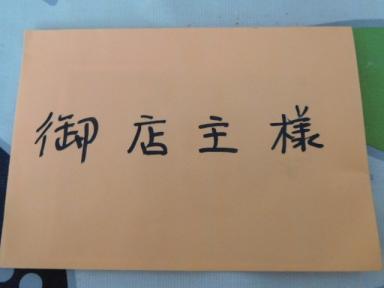 御店主様